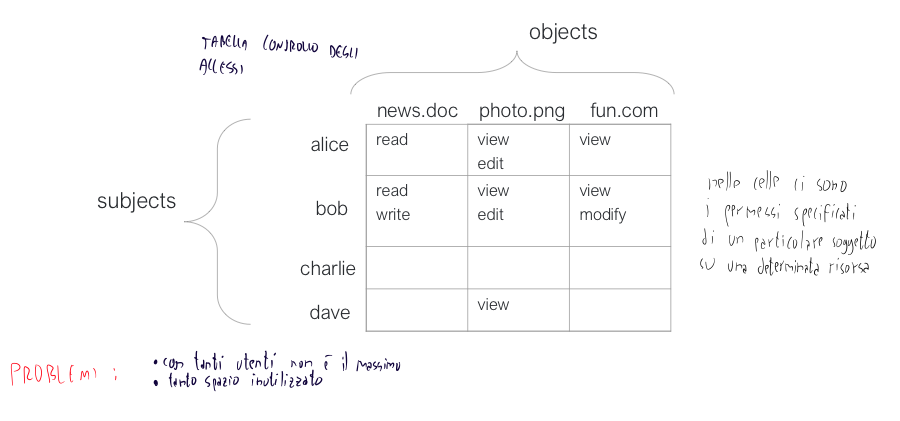 objects
TABELLA CONTROLLO DEGLI
ACCESSI
news.doc photo.png fun.com
alice read view view
edit
subjects
bob read view view
write edit modify
charlie
dave view
nelle celle ci sono
i permessi specificati
di un particolare soggetto
su una determinata risorsa
PROBLEMI :
• con tanti utenti non è il massimo
• tanto spazio inutilizzato